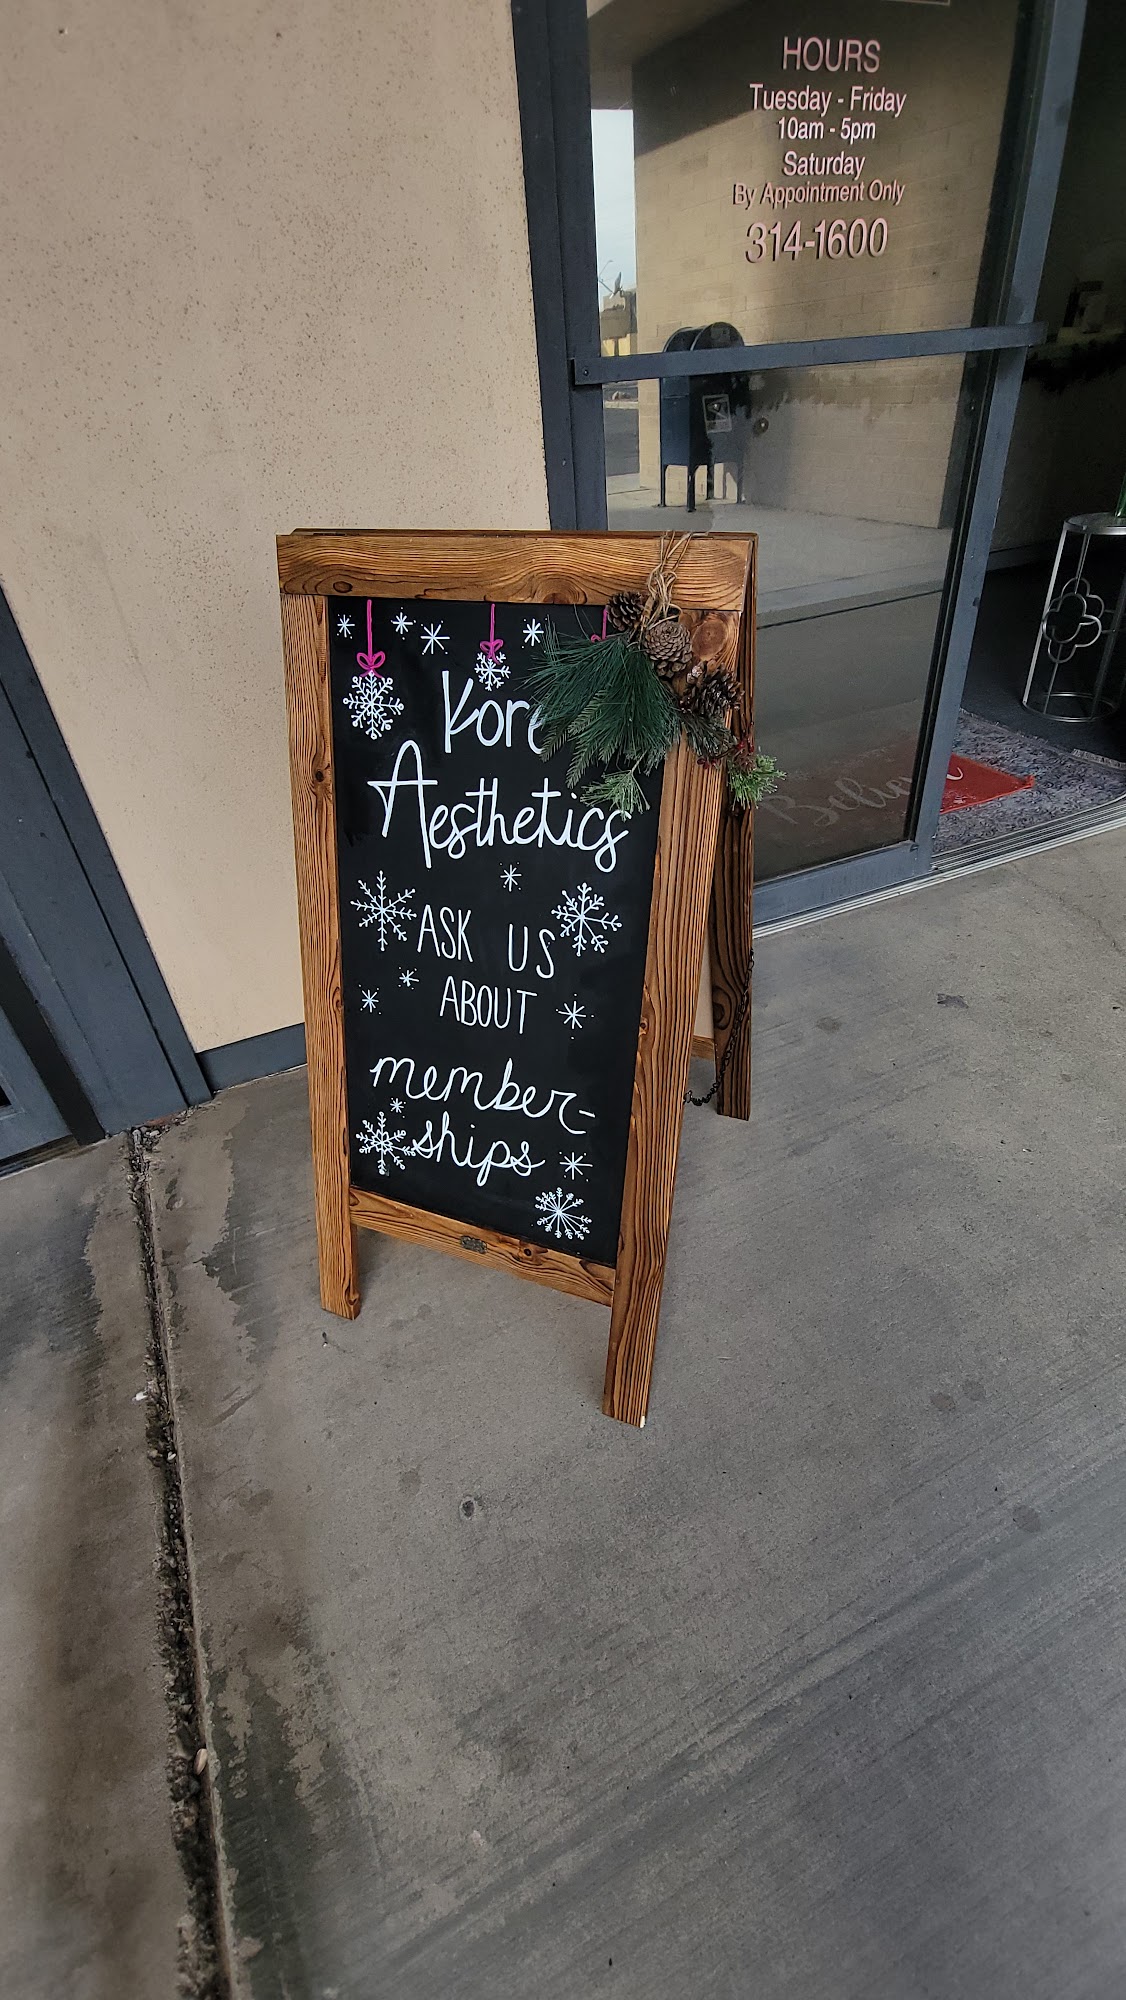 HOURS
Tuesday - Friday
10am - 5pm
Saturday
By Appointment Only
314-1600
Kore
Aesthetics
ASK US
ABOUT
member-
ships
Believe